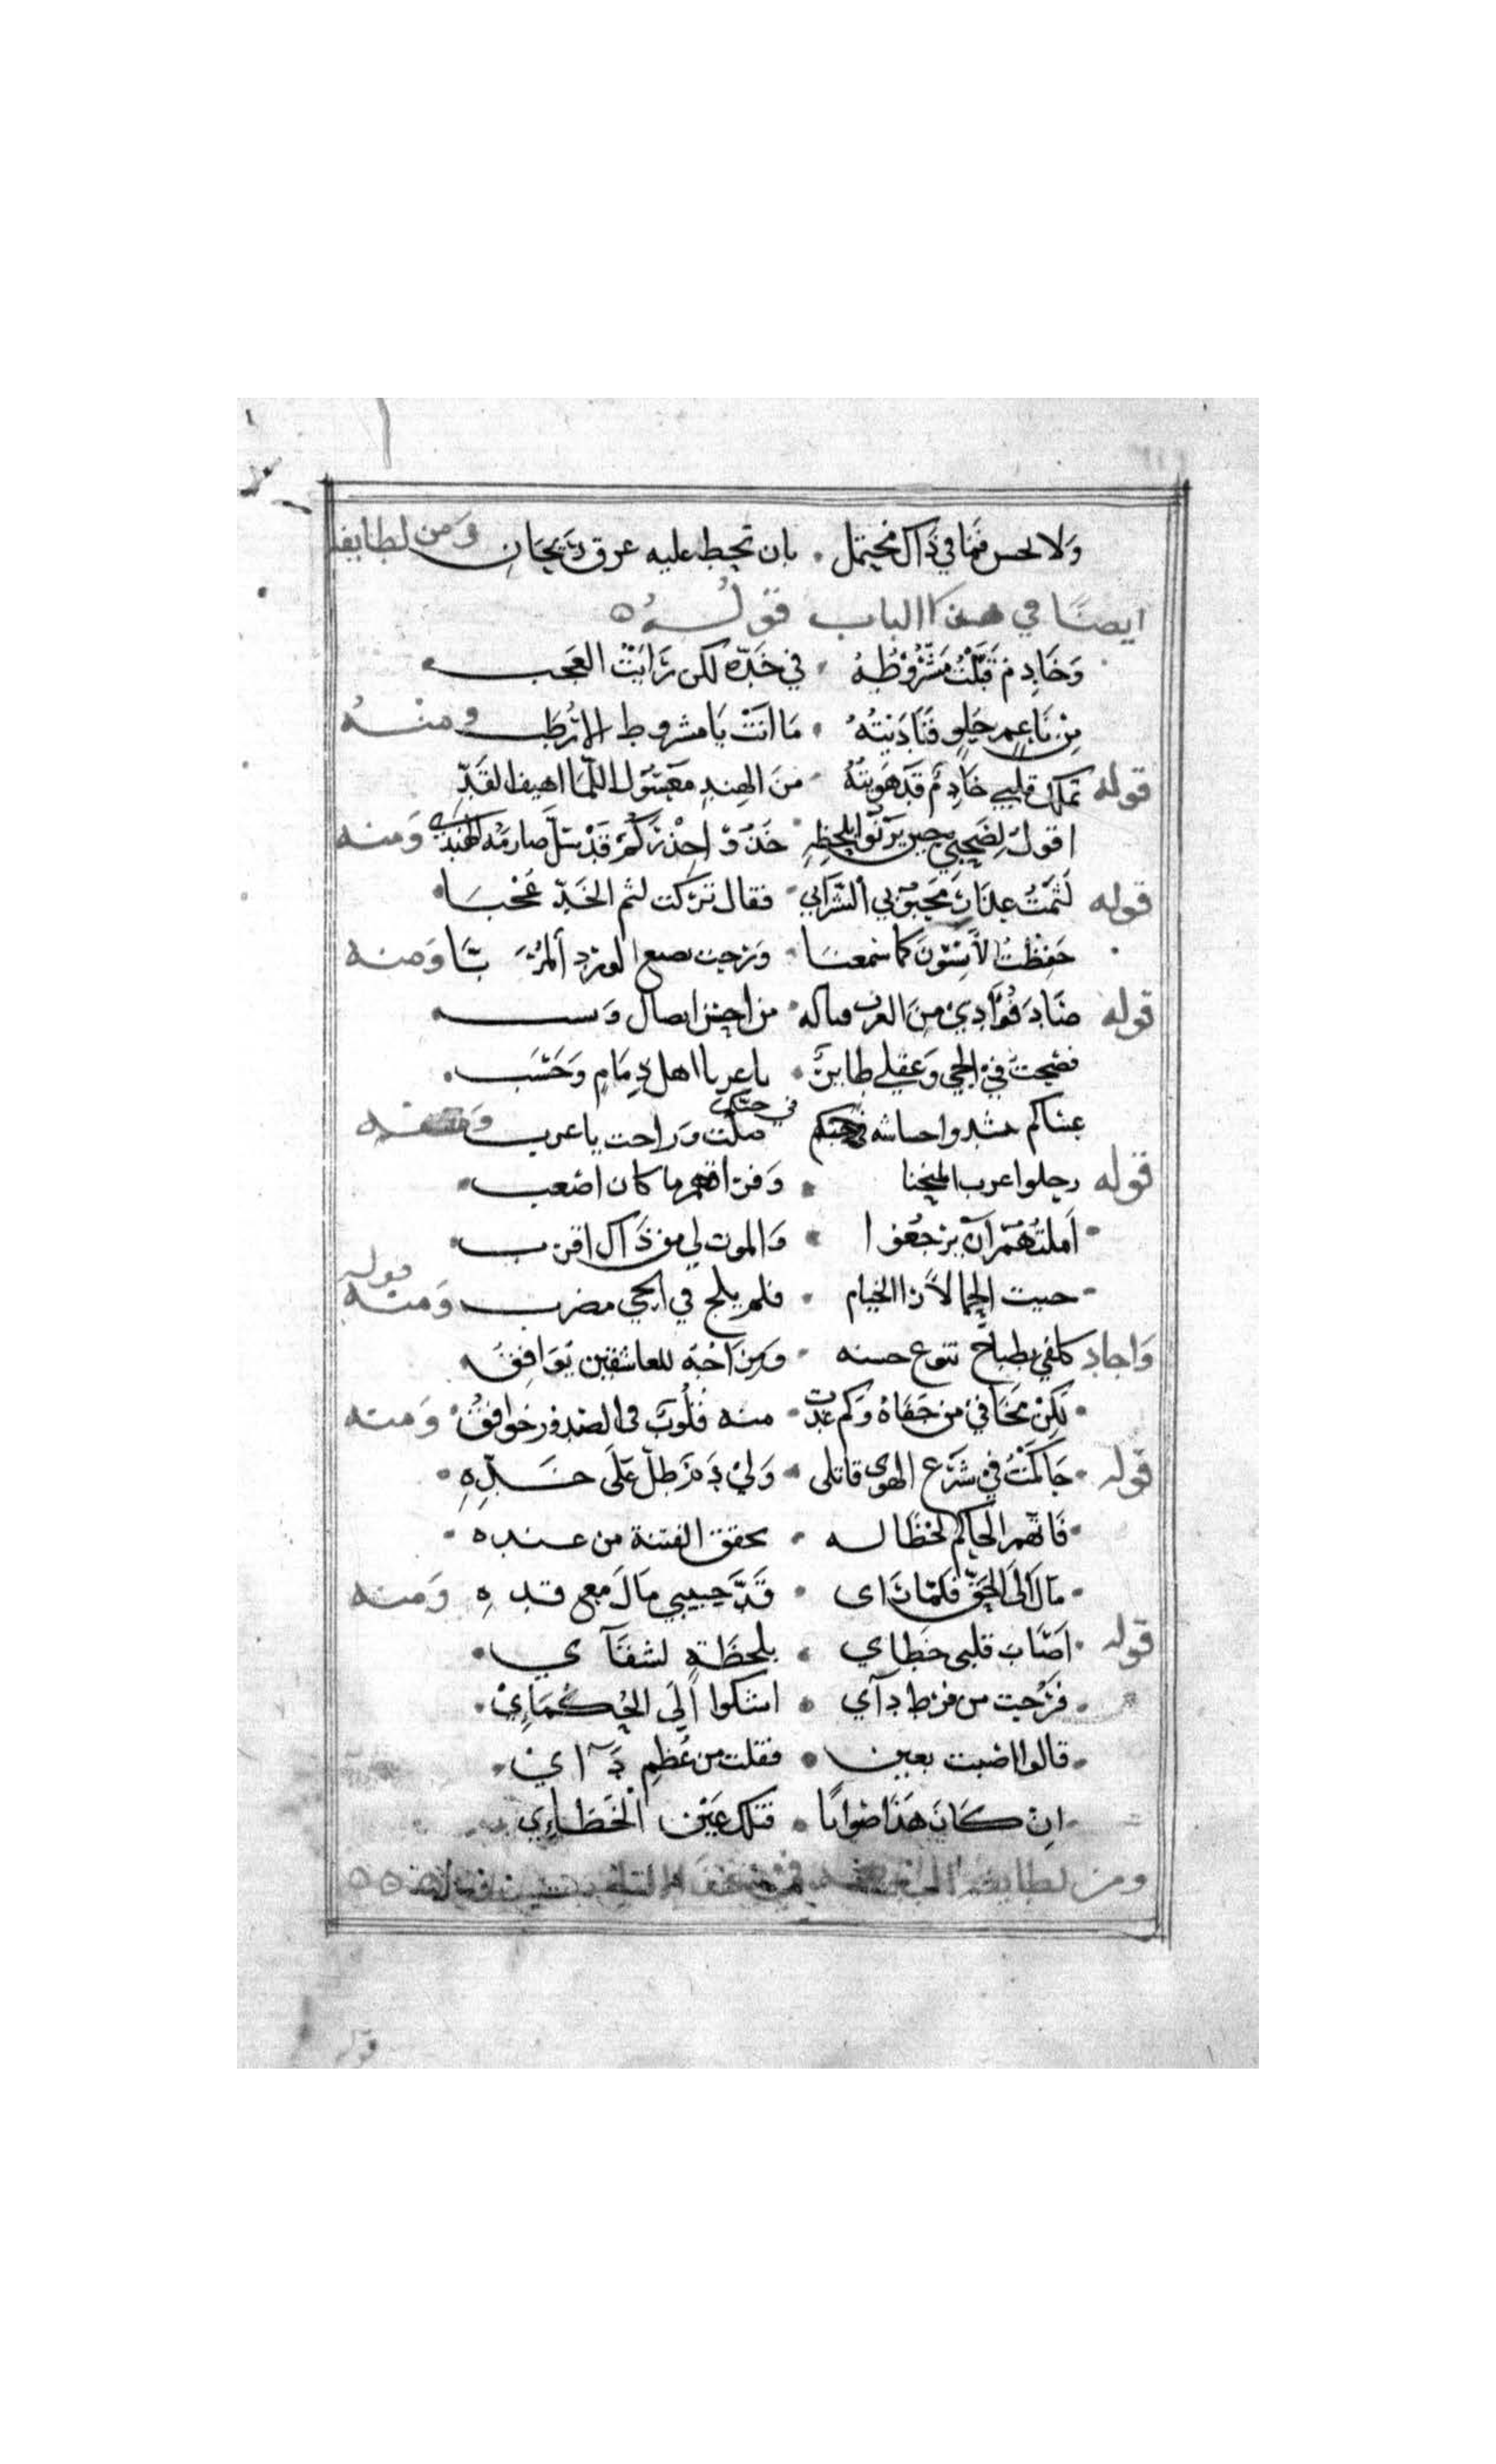 وَلا تحس فمَا في ذَاك محتمل . بان تحط عليه عرق رَيحَانِ وَمن لطايفه
ايضًا في هذا الباب قولهُ
وَخَادِم قَبَّلْتُ مَشْرُوْطهُ . في خَدّه لكن رَايَتُ العَجَب
مِن نَاعِم حَلٍو فَنَادَيتهُ . مَا انَتْ يَا مشروط الا رُطَب ومنهُ
قوله تملك قلبي خَادِمٌ قَد هَوَيتهُ . منَ الهِندِ معَسُول اللمَا اهيف القَدِّ
اقولُ لِصَحبيْ حِين يَرنُو بلحظِهِ . خذوْ احِذْرَكُم قَدْ سَلَّ صَارمهُ الهندي وَمنه
قوله لثمَتُ عِذَارَ مَحبُوبي الشرَابي . فقال تركت لثم الخَدّ عُجْبَا
حَفِظْتَ الاَسَ كما سَمعنَا . وَرحت تضيع الورد المُرَبَّا وَمنه
قوله صَادَ فُؤَادِي مِنَ العرب من احسن ايصال
فصْحت في الحي وَعقلي طاير . يا عرب يا اهل ذِمَامٍ وَحَسَب
عساكم حشاشة في حبكم ضلت وَراحت يا عرب وَمنه
قوله رحلوا عرب المنحنا . وَفراقهم ما كان اصعب
اَملتُهُمْ اَنْ يرجعُوا . وَالموت لي من ذَاك اقرب
حيت الحما لا ذا الخيام . فلم يلج في الحي مضرب وَمنه قوله
وَاجاد كلفي بطباخ تنوع حسنه . وَمِزَاجُهُ للعاشقين يُوَافِقُ
لكِنْ مخافي من جَفَاهُ وَكم غدت . منه قلُوبٌ في الصدور خوافقُ وَمنه
قوله حَاكمَتُ في شَرْعِ الهوى قاتلى . وَليْ دَمٌ طلّ عَلَى خَدِّهِ
فَاتهم الحاكم لحظًا له . يحقق الفتنة من عنده
مَالَ اَلى الحَقِّ فلمَّا رَاى . قَدَّ حَبيبي مَالَ مع قدهِ وَمنه
قوله اَصَابَ قلبى خطاي . بلحظَةٍ لشقَآي
فرُحت من فرط دآي . اشكوا الَى الحُكمَاءِ
قالوا اصبت بعين . فقلت من عُظِم دَآاي
اِنْ كَانَ هَذَا صَوابًا . فتلك عَيْن الخَطَاءِي
ومن لطايف
قوله